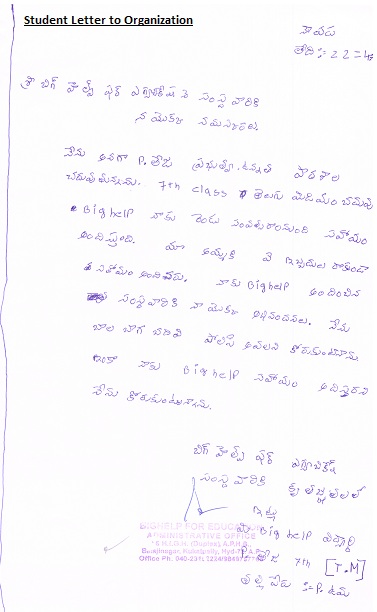 Student Letter to Organization
కావడు
తేది :- 22=4
శ్రీ బిగ్ హెల్ప్ ఫర్ ఎడ్యుకేషన్ సంస్థ వారికి
నా యొక్క నమస్కారాలు.
నేను అనగా P. తేజ ప్రభుత్వ ఉన్నత పాఠశాల
చదువుతున్నాను. 7th class తెలుగు మీడియం చదువు
Big help నాకు రెండు సంవత్సరాలనుండి సహాయం
అందిస్తుంది. మా అమ్మకి ఏ ఇబ్బందులు రాకుండా
సహాయం అందించారు. నాకు Big help అందించిన
సంస్థ వారికి నా యొక్క అభినందనలు. నేను
బాల బాగ చదివి పోలీస్ అవలని కోరుకుంటున్నాను.
ఇంకా నాకు Big help సహాయం అందిస్తారని
నేను కోరుకుంటున్నాను.
బిగ్ హెల్ప్ ఫర్ ఎడ్యుకేషన్
సంస్థ వారికి కృతజ్ఞతలతో
ఇట్లు
మీ Big help విద్యార్థి
P. తేజ 7th [T.M]
తల్లి పేరు :- P. ఉమ
BIGHELP FOR EDUCATION
ADMINISTRATIVE OFFICE
Office Ph. 040-2311